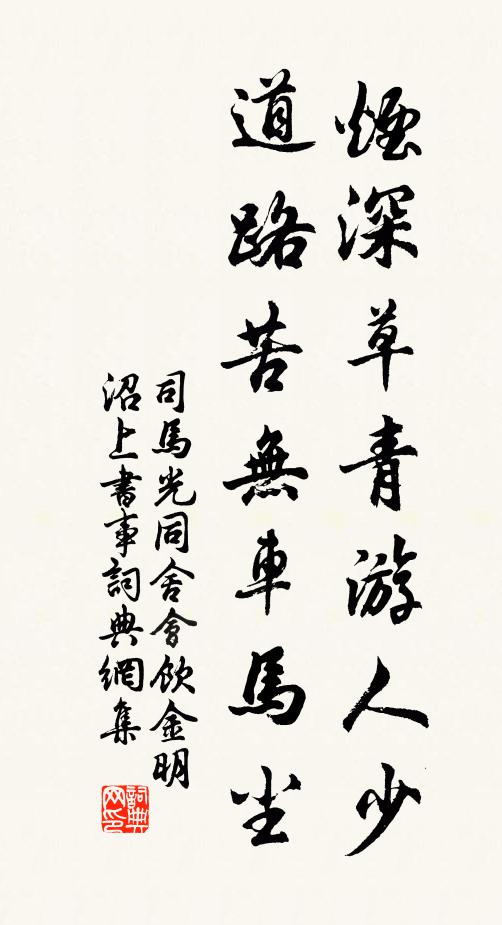 煙深草青游人少
道路苦無車馬尘
司馬光同舍會飲金明
沼上書事詞典網集
詞典
网印